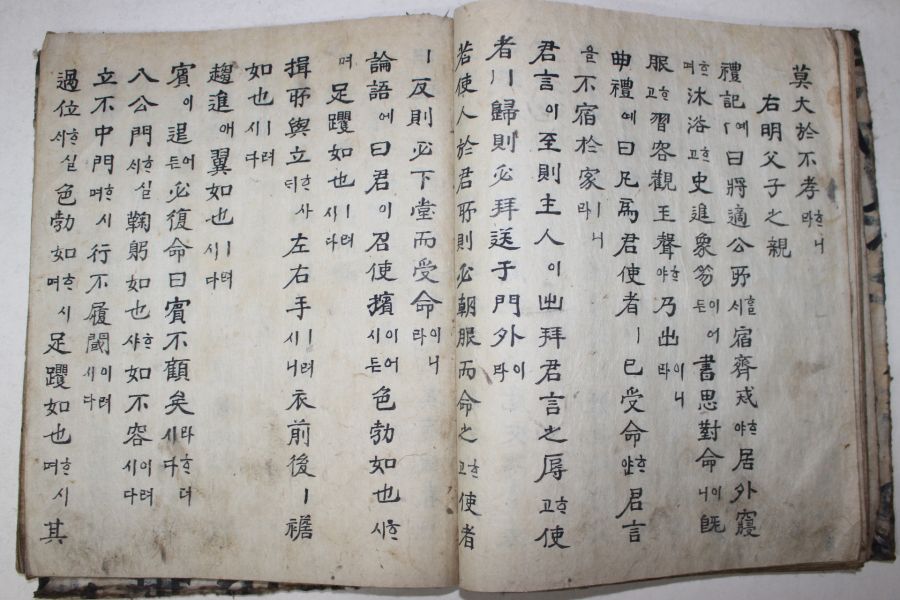 莫大於不孝ᄒᆞ니라
右明父子之親
禮記예ㅣ曰將適公所ᄒᆞᆯ시宿齊戒ᄒᆞ야居外寢
ᄒᆞ며沐浴ᄒᆞ고史進象笏이어든書思對命이니旣
服ᄒᆞ고習容觀玉聲ᄒᆞ야乃出이니라
曲禮예曰凡爲君使者ㅣ已受命ᄒᆞ얀君言
을不宿於家ㅣ니라
君言이至則主人이出拜君言之辱ᄒᆞ고使
者ㅣ歸則必拜送于門外라이
若使人於君所則必朝服而命之ᄒᆞ고使者
ㅣ反則必下堂而受命이니라
論語에曰君이召使擯이어시든色勃如也ᄒᆞ시
며足躩如也ㅣ러시다
揖所與立ᄒᆞ사左右手ㅣ러시니衣前後ㅣ襜
如也ㅣ러시다
趨進애翼如也ㅣ러시다
賓이退어든必復命曰賓不顧矣라ᄒᆞ더시다
入公門ᄒᆞ실시鞠躬如也ᄒᆞ샤如不容이러시다
立不中門ᄒᆞ시며行不履閾이러시다
過位ᄒᆞ실시色勃如ᄒᆞ시며足躩如也ᄒᆞ시며其